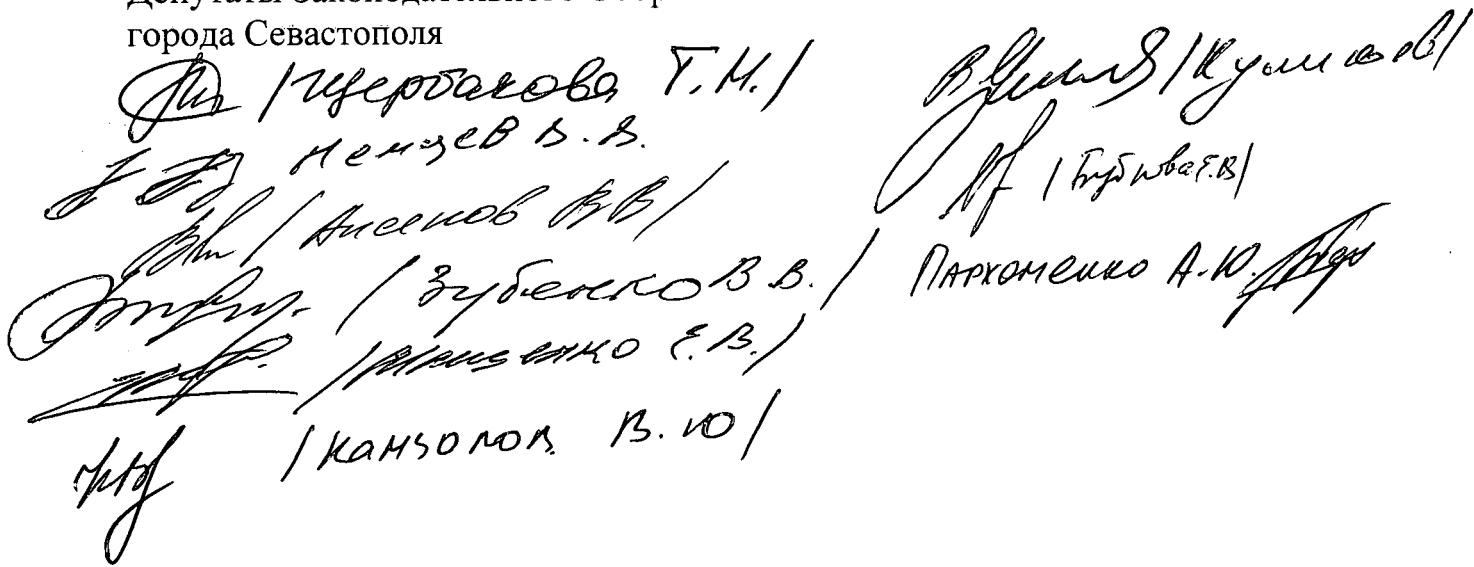 города Севастополя
/Щербакова Т.М./
Немцев В.В.
/Аксенов ВВ/
/Зубенко В В./
Е.В./
/Камзолов В.Ю/
/Куликов/
Пархоменко А.Ю.